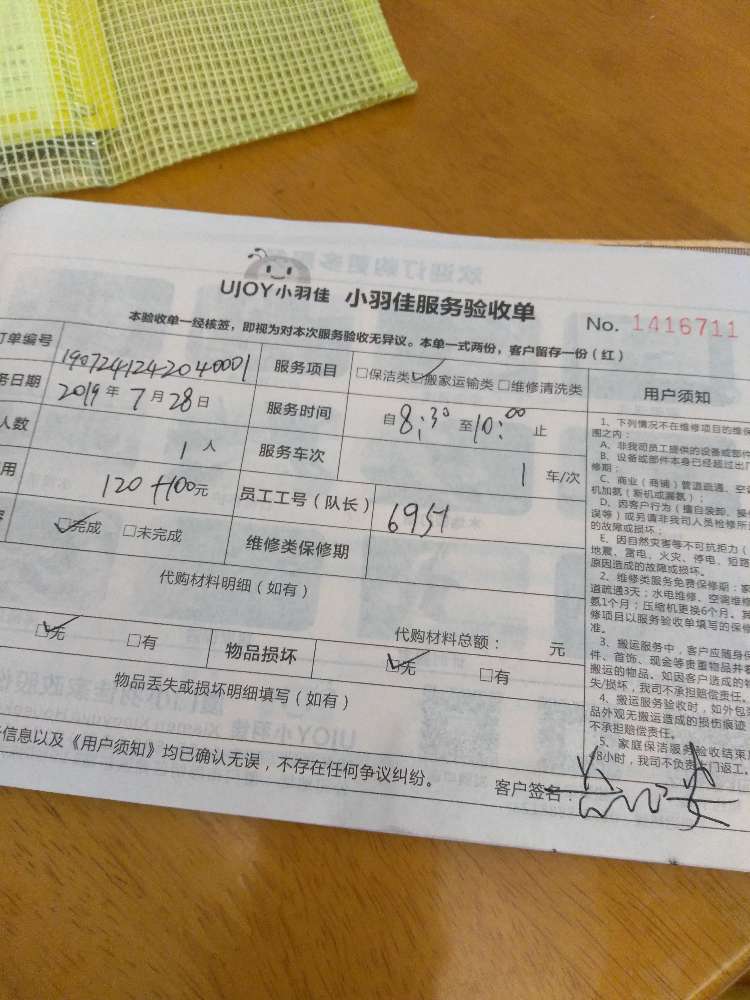 UJOY小羽佳 小羽佳服务验收单
本验收单一经核签，即视为对本次服务验收无异议。本单一式两份，客户留存一份（红）
No. 1416711
订单编号 1907241242040001 服务项目 □保洁类 ☑搬家运输类 □维修清洗类
务日期 2019年7月28日 服务时间 自8:30至10:00止
人数 1人 服务车次 1 车/次
用 120+100元 员工工号（队长） 6951
☑完成 □未完成 维修类保修期
代购材料明细（如有）
代购材料总额： 元
☑无 □有 物品损坏 ☑无 □有
物品丢失或损坏明细填写（如有）
信息以及《用户须知》均已确认无误，不存在任何争议纠纷。
客户签名：
用户须知
1、下列情况不在维修项目的维保
围之内：
A、非我司员工提供的设备或部件
B、设备或部件本身已经超过出厂
修期；
C、商业（商铺）管道疏通、空
机加氨（新机或漏氨）；
D、因客户行为（擅自装卸、操
误等）或另请非我司人员检修所
的故障或损坏；
E、因自然灾害等不可抗拒力（
地震、雷电、火灾、停电、短路
原因造成的故障或损坏。
2、维修类服务免费保修期：家
道疏通3天；水电维修、空调维修
氨1个月；压缩机更换6个月。其
修项目以服务验收单填写的保修
准。
3、搬运服务中，客户应随身保
件、首饰、现金等贵重物品并看
搬运的物品。如因客户造成的物
失/损坏，我司不承担赔偿责任。
4、搬运服务验收时，如外包装
品外观无搬运造成的损伤痕迹
不承担赔偿责任。
5、家庭保洁服务验收结束后
48小时，我司不负责上门返工。